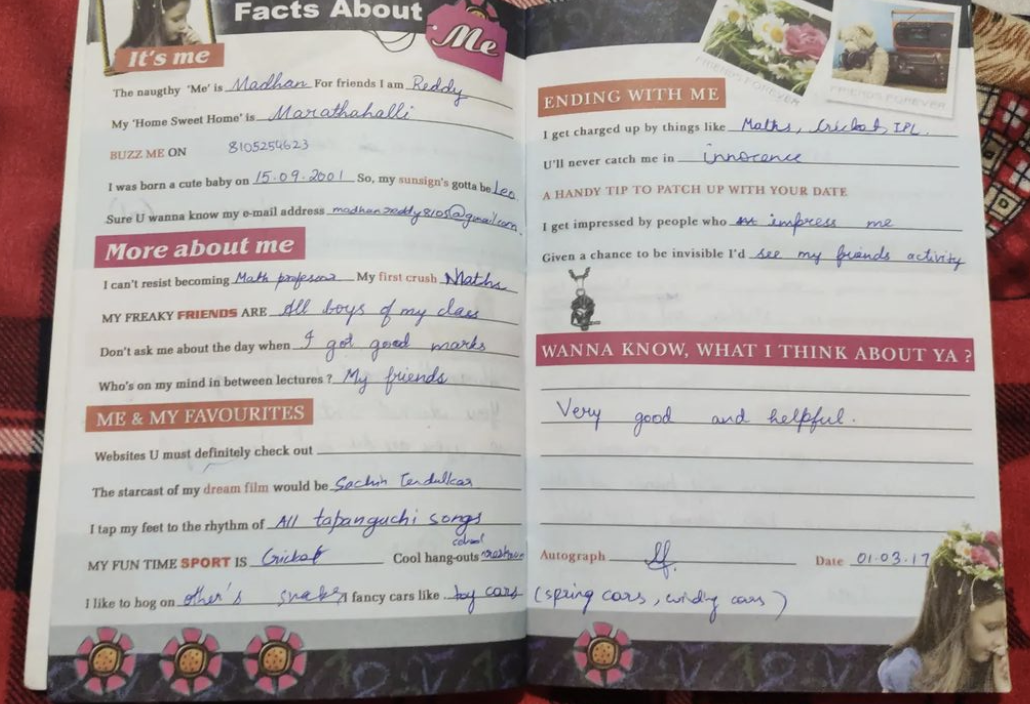 Facts About
Me
It's me
The naugthy 'Me' is Madhan For friends I am Reddy
My 'Home Sweet Home' is Marathahalli
BUZZ ME ON 8105254623
I was born a cute baby on 15.09.2001 So, my sunsign's gotta be Leo
Sure U wanna know my e-mail address madhan2reddy8105@gmail.com.
More about me
I can't resist becoming Math professor My first crush Maths
MY FREAKY FRIENDS ARE All boys of my class
Don't ask me about the day when I got good marks
Who's on my mind in between lectures ? My friends
ME & MY FAVOURITES
Websites U must definitely check out
The starcast of my dream film would be Sachin Tendulkar
I tap my feet to the rhythm of All tapanguchi songs
MY FUN TIME SPORT IS Cricket Cool hang-outs
I like to hog on other's snakes I fancy cars like toy cars (spring cars, winding cars)
FRIENDS FOREVER
FRIENDS FOREVER
ENDING WITH ME
I get charged up by things like Maths, Cricket, IPL.
U'll never catch me in innocence
A HANDY TIP TO PATCH UP WITH YOUR DATE
I get impressed by people who impress me
Given a chance to be invisible I'd see my friends activity
WANNA KNOW, WHAT I THINK ABOUT YA ?
Very good and helpful.
Autograph Date 01.03.17